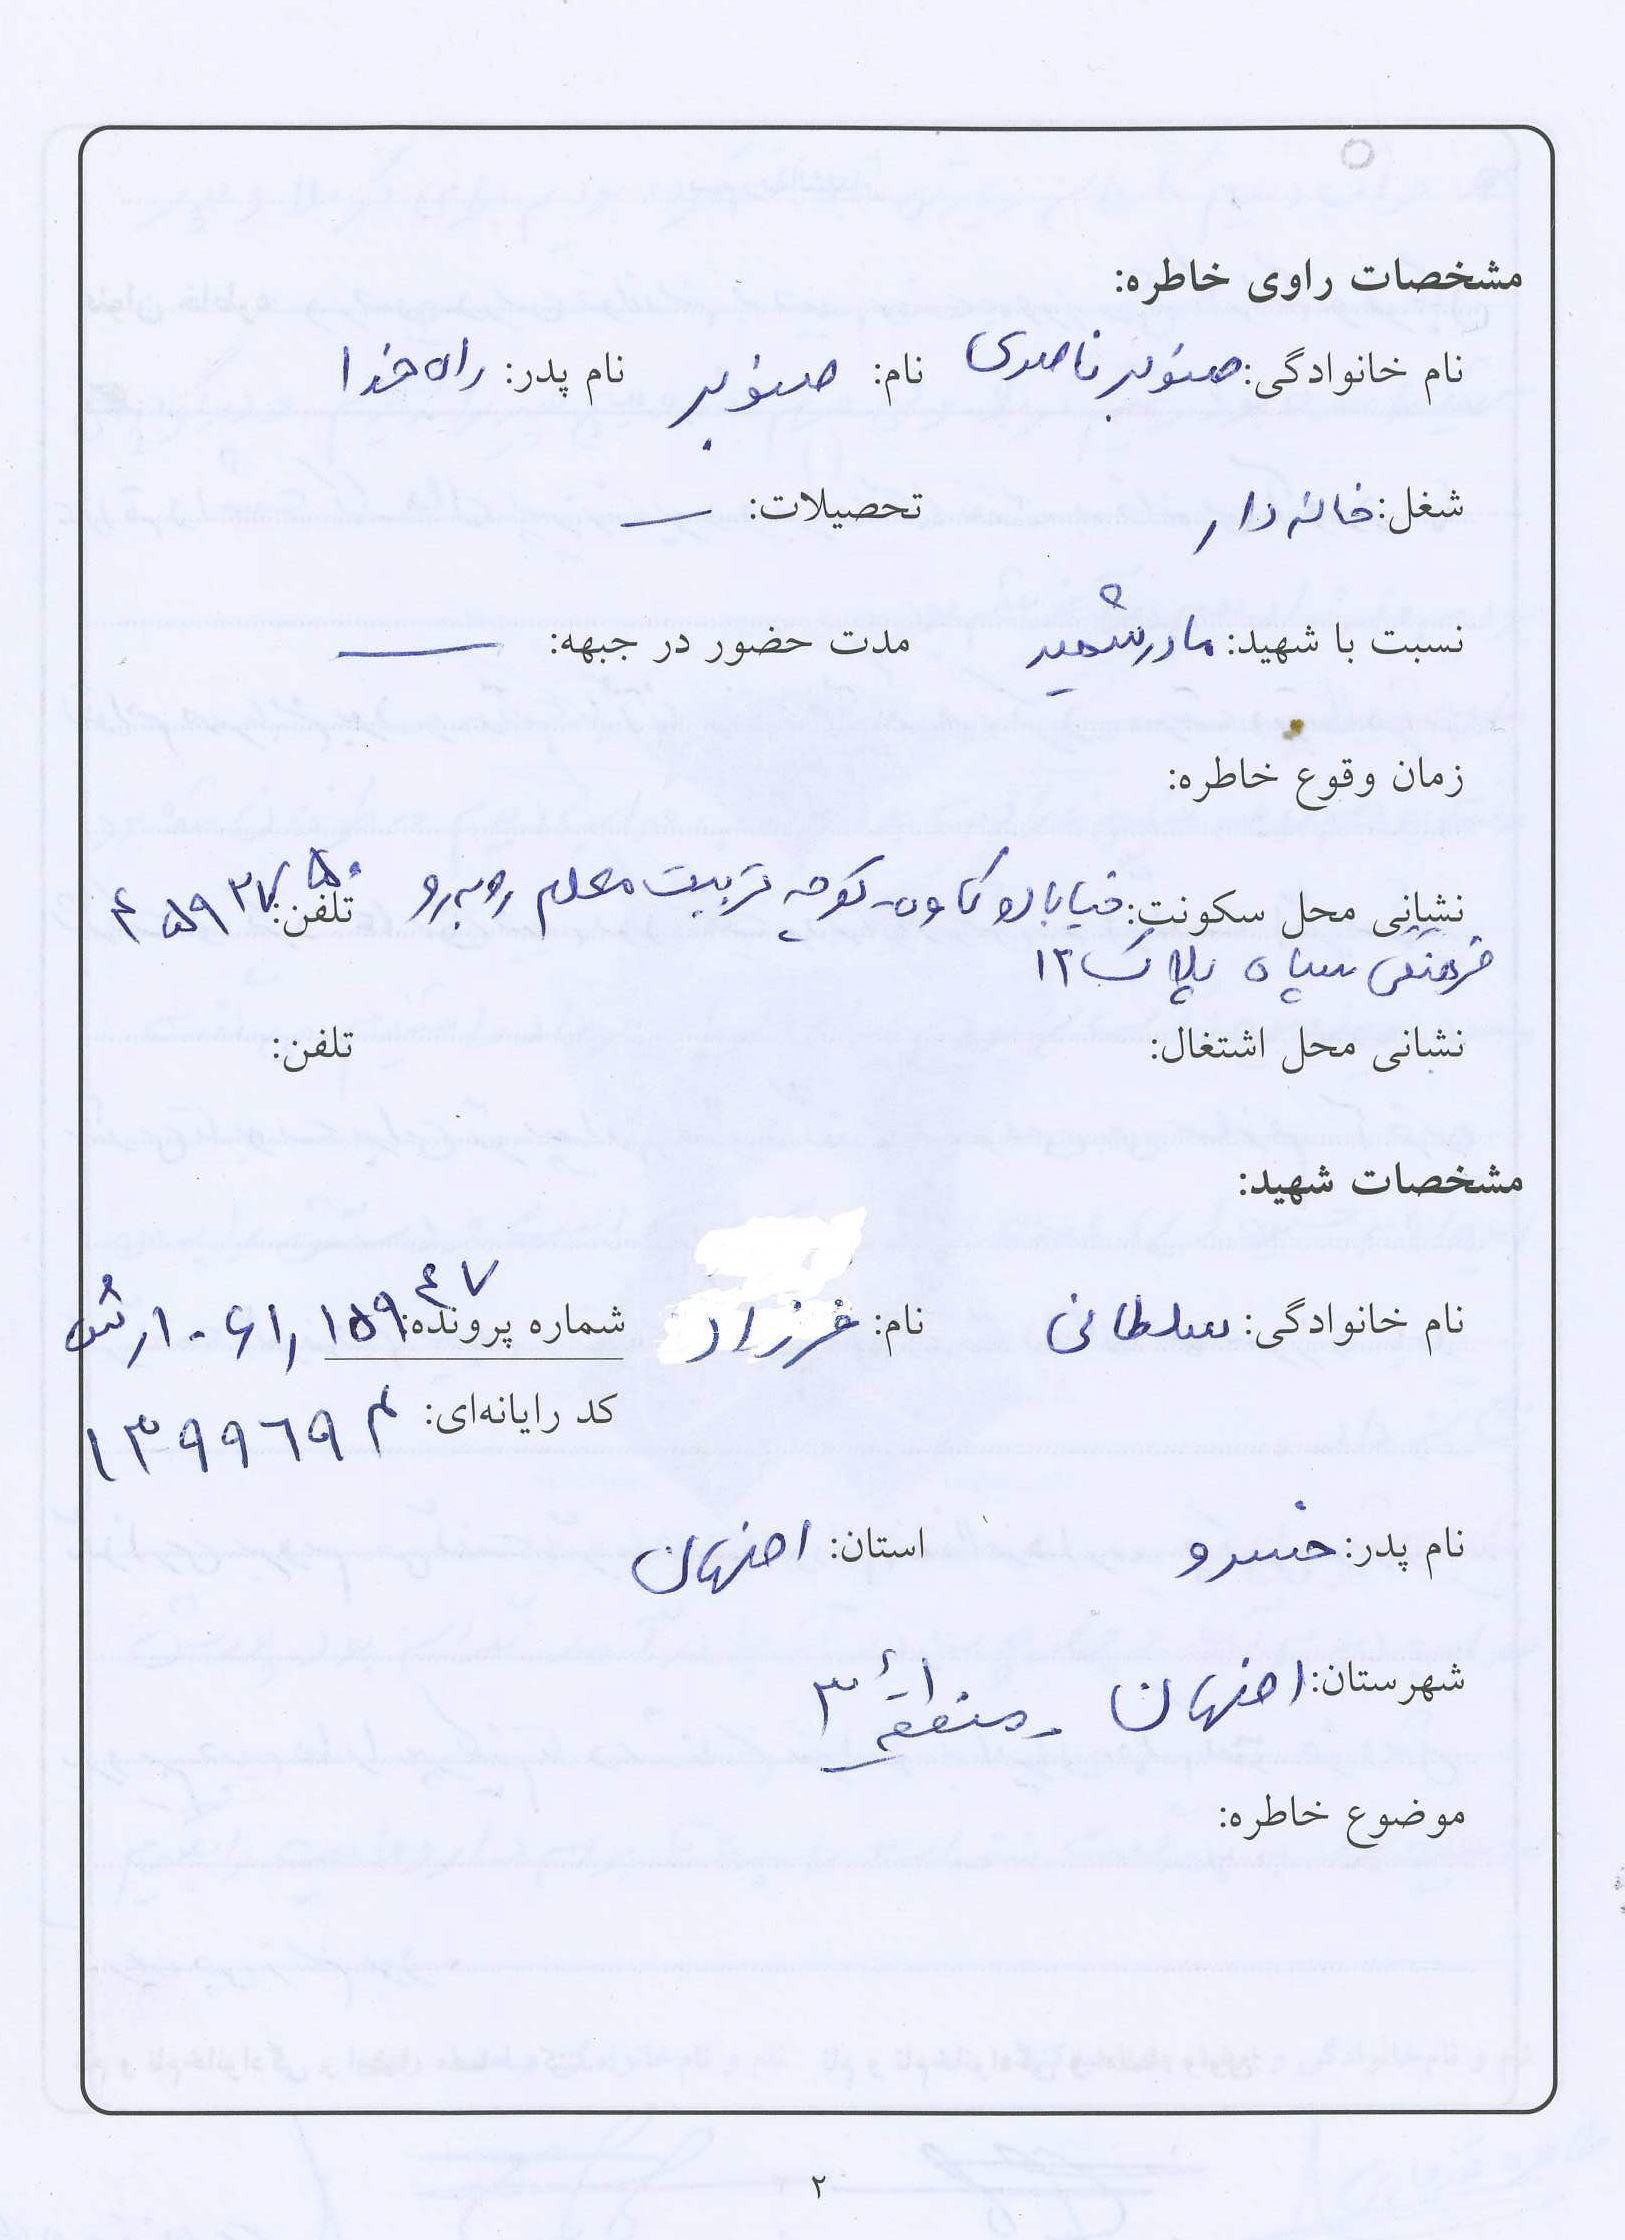 مشخصات راوی خاطره:
نام خانوادگی: صنوبر ناصری نام: صنوبر نام پدر: راه خدا
شغل: خانه دار تحصیلات: —
نسبت با شهید: مادر شهید مدت حضور در جبهه: —
زمان وقوع خاطره:
نشانی محل سکونت: خیابان کاوه - کوچه تربیت معلم روبه رو تلفن:
فرهنگی سپاه پلاک ۱۲
نشانی محل اشتغال: تلفن:
مشخصات شهید:
نام خانوادگی: سلطانی نام: فرزاد شماره پرونده:
کد رایانه‌ای: ۱۳۹۹۶۹
نام پدر: خسرو استان: اصفهان
شهرستان: اصفهان - منطقه ۳
موضوع خاطره:
۲